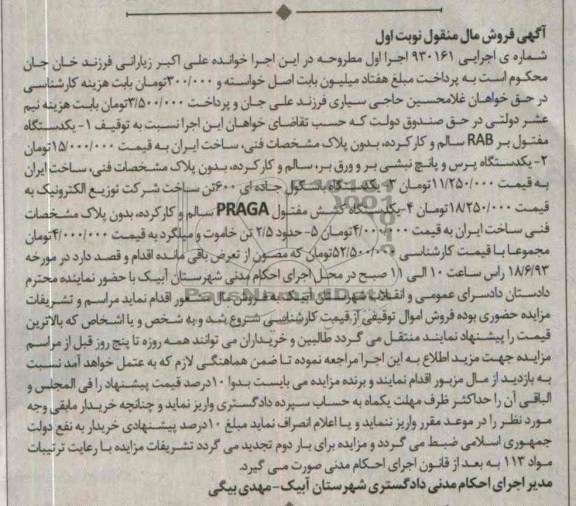 آگهی فروش مال منقول نوبت اول
شماره ی اجرایی ۹۳۰۱۶۱ اجرا اول مطروحه در این اجرا خوانده علی اکبر زیارانی فرزند خان جان
محکوم است به پرداخت مبلغ هفتاد میلیون بابت اصل خواسته و ۳۰۰/۰۰۰تومان بابت هزینه کارشناسی
در حق خواهان غلامحسین حاجی سیاری فرزند علی جان و پرداخت ۳/۵۰۰/۰۰۰تومان بابت هزینه نیم
عشر دولتی در حق صندوق دولت که حسب تقاضای خواهان این اجرا نسبت به توقیف ۱- یکدستگاه
مفتول بر RAB سالم و کار کرده، بدون پلاک مشخصات فنی، ساخت ایران به قیمت ۱۵/۰۰۰/۰۰۰تومان
۲- یکدستگاه پرس و پانچ نبشی بر و ورق بر، سالم و کار کرده، بدون پلاک مشخصات فنی، ساخت ایران
به قیمت ۱۱/۲۵۰/۰۰۰تومان ۳- یکدستگاه باسکول جاده ای ۶۰۰تن ساخت شرکت توزیع الکترونیک به
قیمت ۱۸/۲۵۰/۰۰۰تومان ۴-یکدستگاه کشش مفتول PRAGA سالم و کارکرده، بدون پلاک مشخصات
فنی ساخت ایران به قیمت ۴/۰۰۰/۰۰۰تومان ۵- حدود ۲/۵ تن خاموت و میلگرد به قیمت ۴/۰۰۰/۰۰۰تومان
مجموعا با قیمت کارشناسی ۵۲/۵۰۰/۰۰۰تومان که مصون از تعرض باقی مانده اقدام و قصد دارد در مورخه
۱۸/۶/۹۳ راس ساعت ۱۰ الی ۱۱ صبح در محل اجرای احکام مدنی شهرستان آبیک با حضور نماینده محترم
دادستان دادسرای عمومی و انقلاب شهرستان آبیک به فروش مال مزبور اقدام نماید مراسم و تشریفات
مزایده حضوری بوده فروش اموال توقیفی از قیمت کارشناسی شروع شد و به شخص و یا اشخاص که بالاترین
قیمت را پیشنهاد نمایند منتقل می گردد طالبین و خریداران می توانند همه روزه تا پنج روز قبل از مراسم
مزایده جهت مزید اطلاع به این اجرا مراجعه نموده تا ضمن هماهنگی لازم که به عتمل خواهد آمد نسبت
به بازدید از مال مزبور اقدام نمایند و برنده مزایده می بایست بدوا ۱۰درصد قیمت پیشنهاد را فی المجلس و
الباقی آن را حداکثر ظرف مهلت یکماه به حساب سپرده دادگستری واریز نماید و چنانچه خریدار مابقی وجه
مورد نظر را در موعد مقرر واریز ننماید و یا اعلام انصراف نماید مبلغ ۱۰درصد پیشنهادی خریدار به نفع دولت
جمهوری اسلامی ضبط می گردد و مزایده برای بار دوم تجدید می گردد تشریفات مزایده با رعایت ترتیبات
مواد ۱۱۳ به بعد از قانون اجرای احکام مدنی صورت می گیرد.
مدیر اجرای احکام مدنی دادگستری شهرستان آبیک - مهدی بیگی